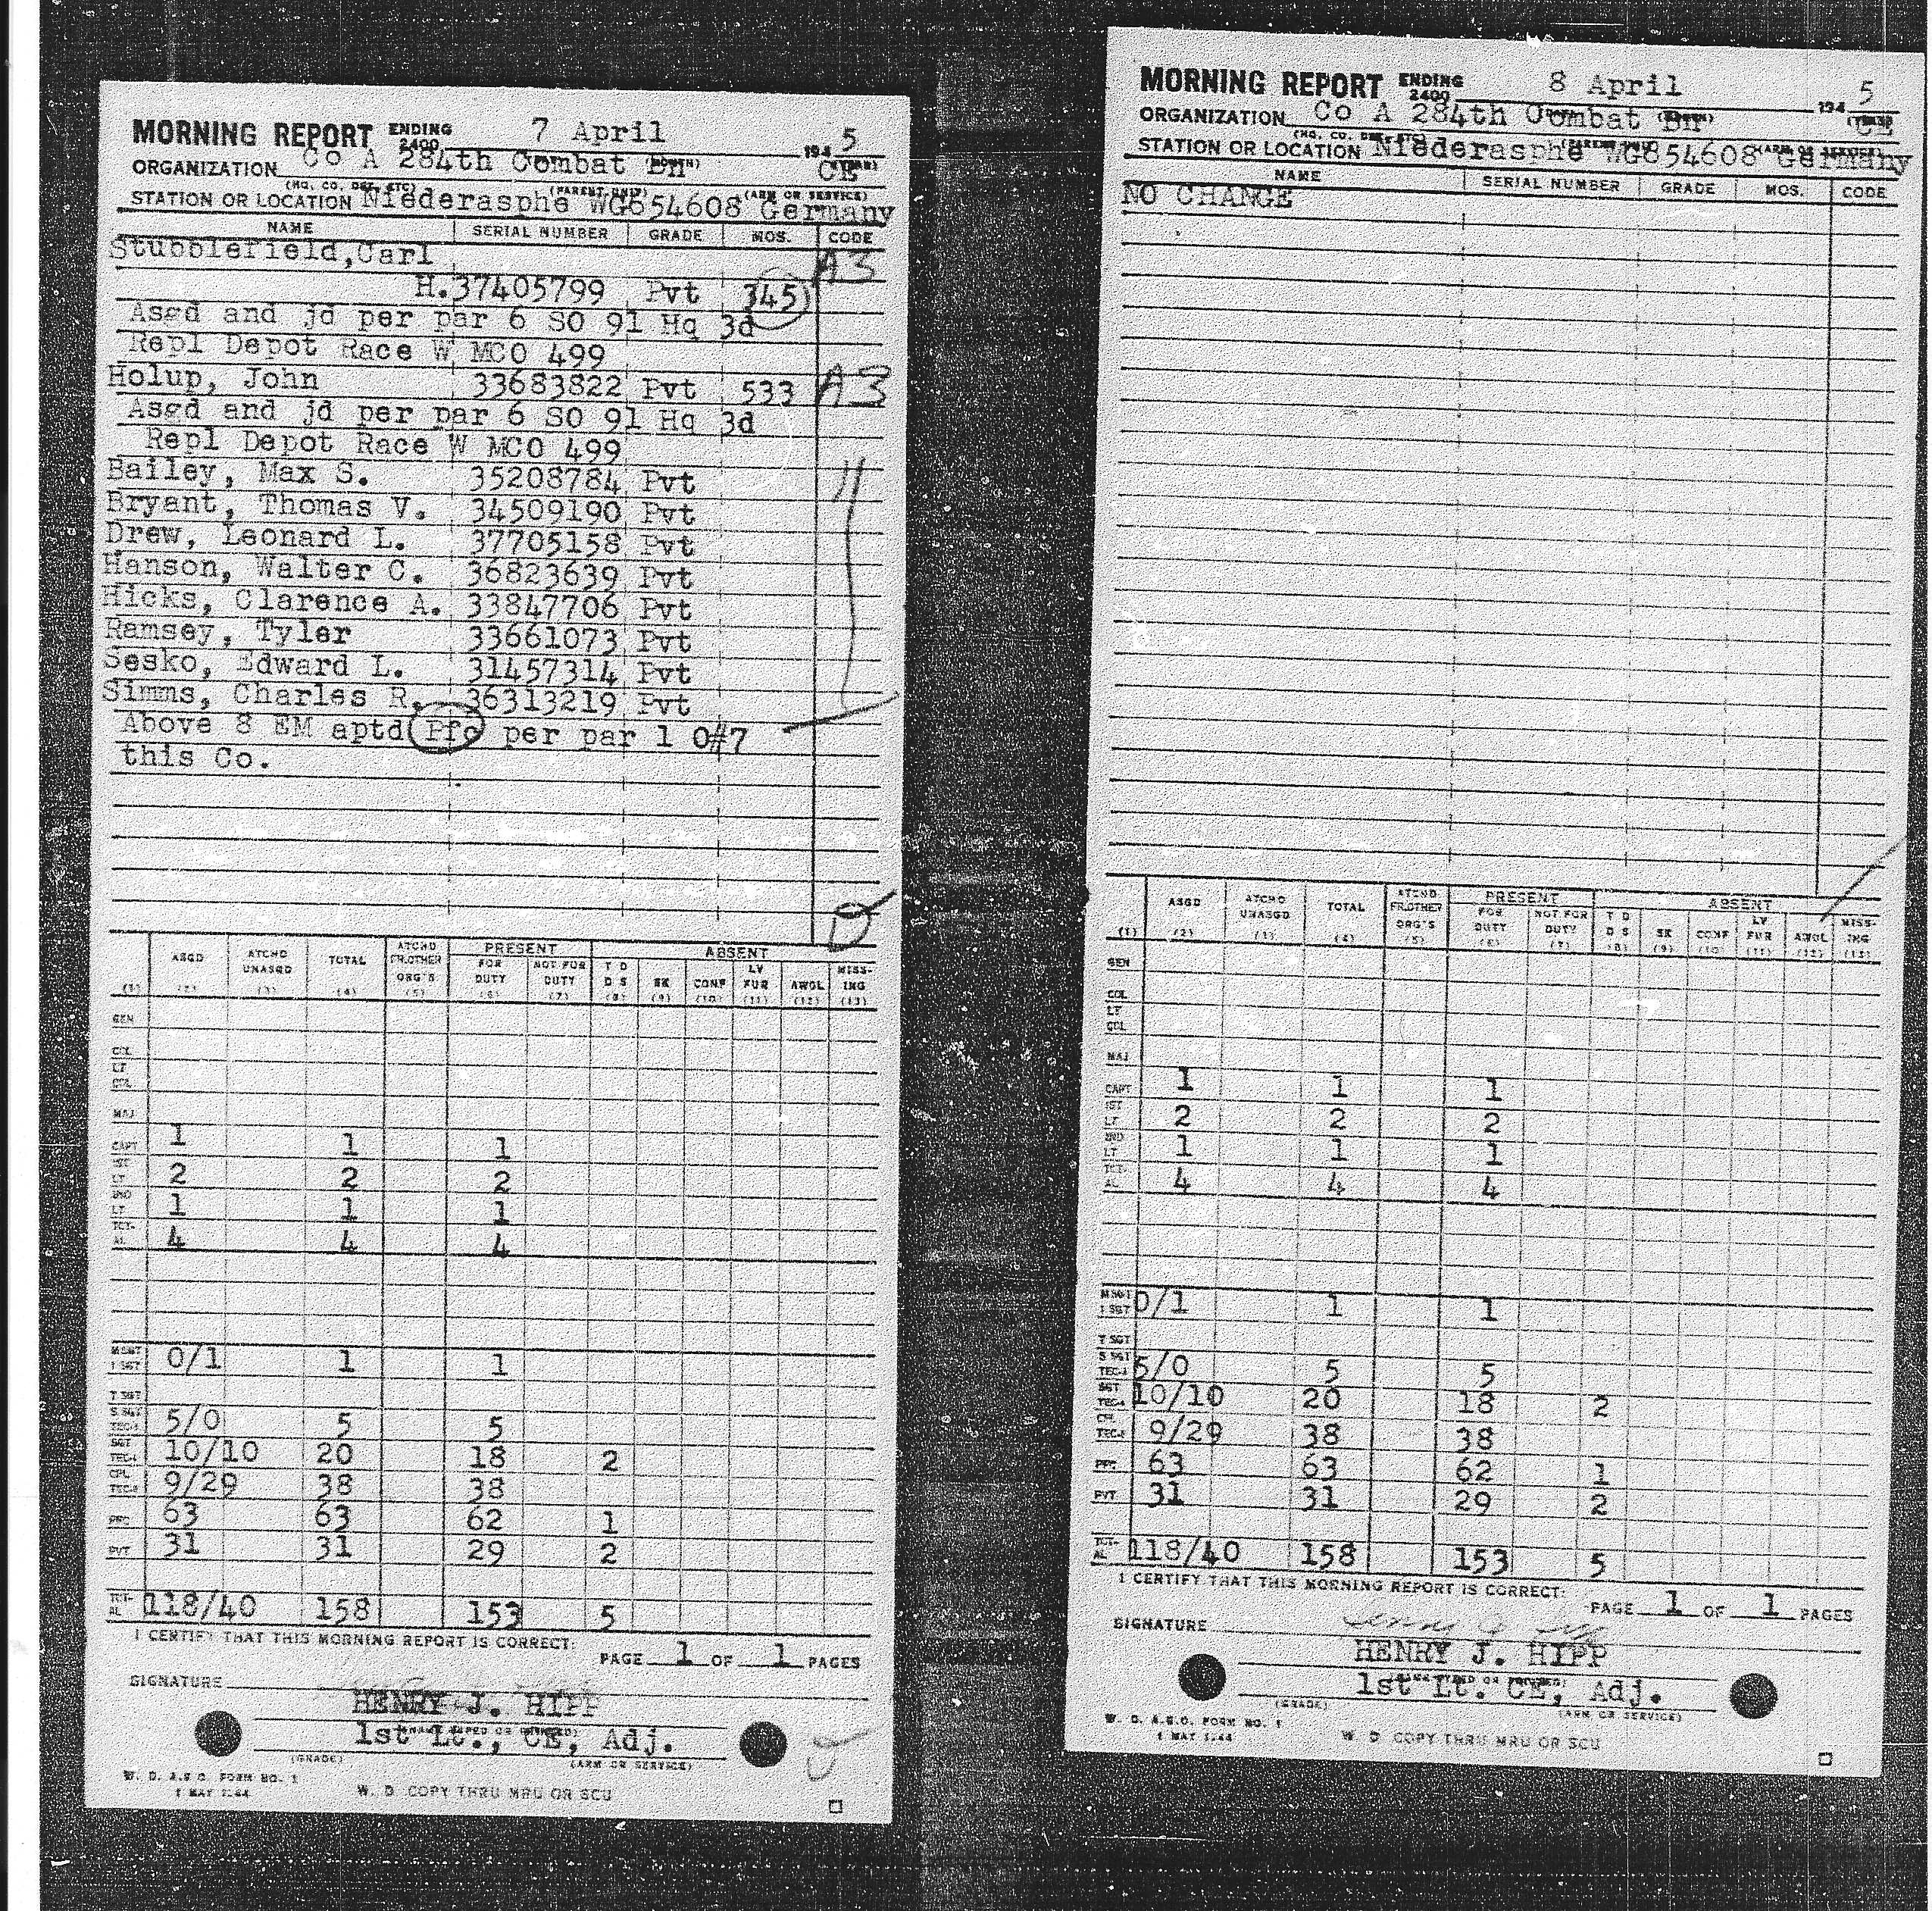 MORNING REPORT ENDING 2400 7 April 194 5
ORGANIZATION Co A 284th Combat Bn CE
(HQ. CO. DET. ETC) (PARENT UNIT) (ARM OR SERVICE)
STATION OR LOCATION Niederasphe WG654608 Germany
NAME SERIAL NUMBER GRADE MOS. CODE
Stubblefield,Carl A3
H.37405799 Pvt 345
Asgd and jd per par 6 SO 91 Hq 3d
Repl Depot Race W MCO 499
Holup, John 33683822 Pvt 533 A3
Asgd and jd per par 6 SO 91 Hq 3d
Repl Depot Race W MCO 499
Bailey, Max S. 35208784 Pvt
Bryant, Thomas V. 34509190 Pvt
Drew, Leonard L. 37705158 Pvt
Hanson, Walter C. 36823639 Pvt
Hicks, Clarence A. 33847706 Pvt
Ramsey, Tyler 33661073 Pvt
Sesko, Edward L. 31457314 Pvt
Simms, Charles R. 36313219 Pvt
Above 8 EM aptd Pfc per par 1 O#7
this Co.
D
PRESENT ABSENT
ASGD ATCHD UNASGD TOTAL ATCHD FR.OTHER ORG'S FOR DUTY NOT FOR DUTY T D D S SK CONF LV FUR AWOL MISS-ING
(1) (2) (3) (4) (5) (6) (7) (8) (9) (10) (11) (12) (13)
GEN
COL
LT COL
MAJ
CAPT 1 1 1
1ST LT 2 2 2
2ND LT 1 1 1
TOT-AL 4 4 4
MSGT 1 SGT 0/1 1 1
T SGT
S SGT TEC-3 5/0 5 5
SGT TEC-4 10/10 20 18 2
CPL TEC-5 9/29 38 38
PFC 63 63 62 1
PVT 31 31 29 2
TOT-AL 118/40 158 153 5
I CERTIFY THAT THIS MORNING REPORT IS CORRECT:
PAGE 1 OF 1 PAGES
SIGNATURE
HENRY J. HIPP
(NAME TYPED OR PRINTED)
1st Lt., CE, Adj.
(GRADE) (ARM OR SERVICE)
W. D. A.G.O. FORM NO. 1
1 MAY 1944
W. D COPY THRU MRU OR SCU
MORNING REPORT ENDING 2400 8 April 194 5
ORGANIZATION Co A 284th Combat Bn CE
(HQ. CO. DET. ETC) (PARENT UNIT) (ARM OR SERVICE)
STATION OR LOCATION Niederasphe WG654608 Germany
NAME SERIAL NUMBER GRADE MOS. CODE
NO CHANGE
PRESENT ABSENT
ASGD ATCHD UNASGD TOTAL ATCHD FR.OTHER ORG'S FOR DUTY NOT FOR DUTY T D D S SK CONF LV FUR AWOL MISS-ING
(1) (2) (3) (4) (5) (6) (7) (8) (9) (10) (11) (12) (13)
GEN
COL
LT COL
MAJ
CAPT 1 1 1
1ST LT 2 2 2
2ND LT 1 1 1
TOT-AL 4 4 4
MSGT 1 SGT 0/1 1 1
T SGT
S SGT TEC-3 5/0 5 5
SGT TEC-4 10/10 20 18 2
CPL TEC-5 9/29 38 38
PFC 63 63 62 1
PVT 31 31 29 2
TOT-AL 118/40 158 153 5
I CERTIFY THAT THIS MORNING REPORT IS CORRECT:
PAGE 1 OF 1 PAGES
SIGNATURE
HENRY J. HIPP
(NAME TYPED OR PRINTED)
1st Lt. CE, Adj.
(GRADE) (ARM OR SERVICE)
W. D. A.G.O. FORM NO. 1
1 MAY 1944
W D COPY THRU MRU OR SCU